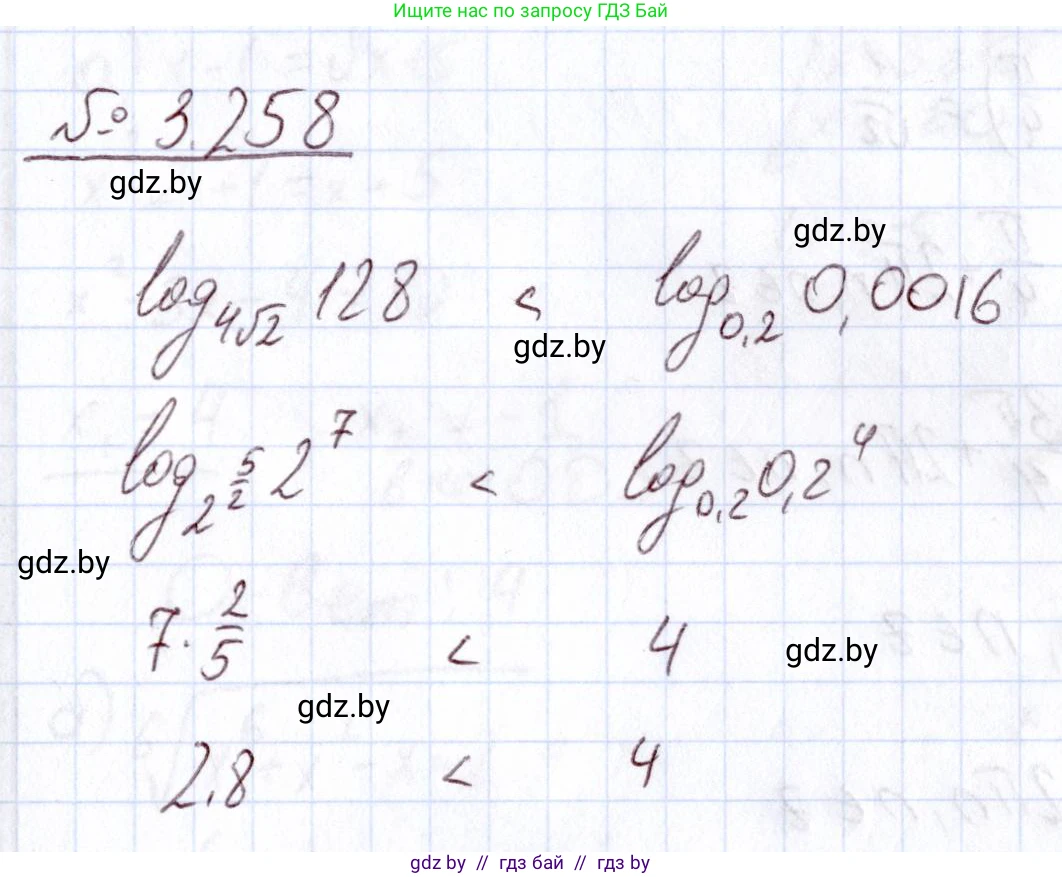 Ищите нас по запросу ГДЗ Бай
№ 3.258
gdz.by
gdz.by
log_{4√2} 128 < log_{0,2} 0,0016
gdz.by
log_{2^{5/2}} 2^7 < log_{0,2} 0,2^4
gdz.by
7 · 2/5 < 4
gdz.by
gdz.by
2.8 < 4
gdz by // гдз бай // gdz by